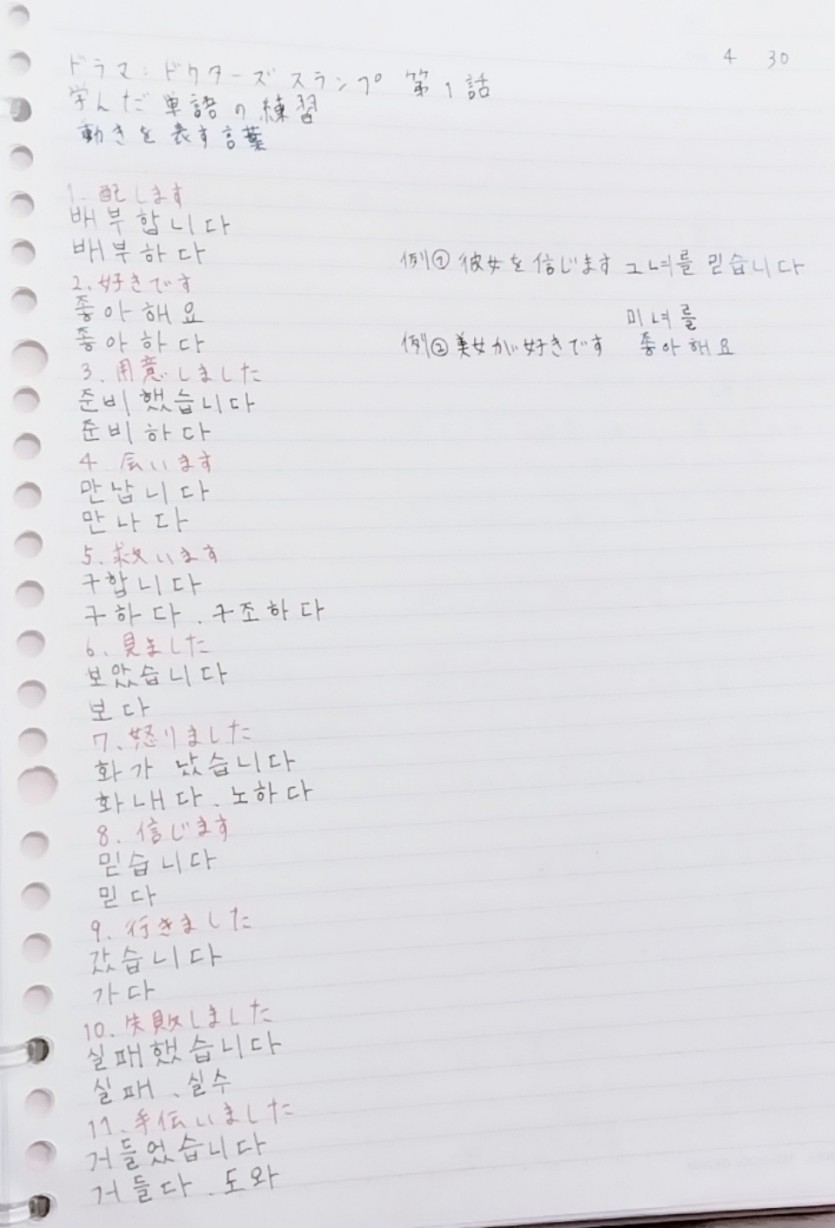 4 30
ドラマ:ドクターズスランプ 第1話
学んだ単語の練習
動きを表す言葉
1. 配します
배부합니다
배부하다
2. 好きです
좋아해요
좋아하다
3. 用意しました
준비했습니다
준비하다
4 会います
만납니다
만나다
5. 救います
구합니다
구하다、구조하다
6. 見ました
보았습니다
보다
7、怒りました
화가 났습니다
화내다、노하다
8. 信じます
믿습니다
믿다
9. 行きました
갔습니다
가다
10. 失敗しました
실패했습니다
실패、실수
11、手伝いました
거들었습니다
거들다、도와
例① 彼女を信じます 그녀를 믿습니다
例② 美女が好きです 미녀를
좋아해요